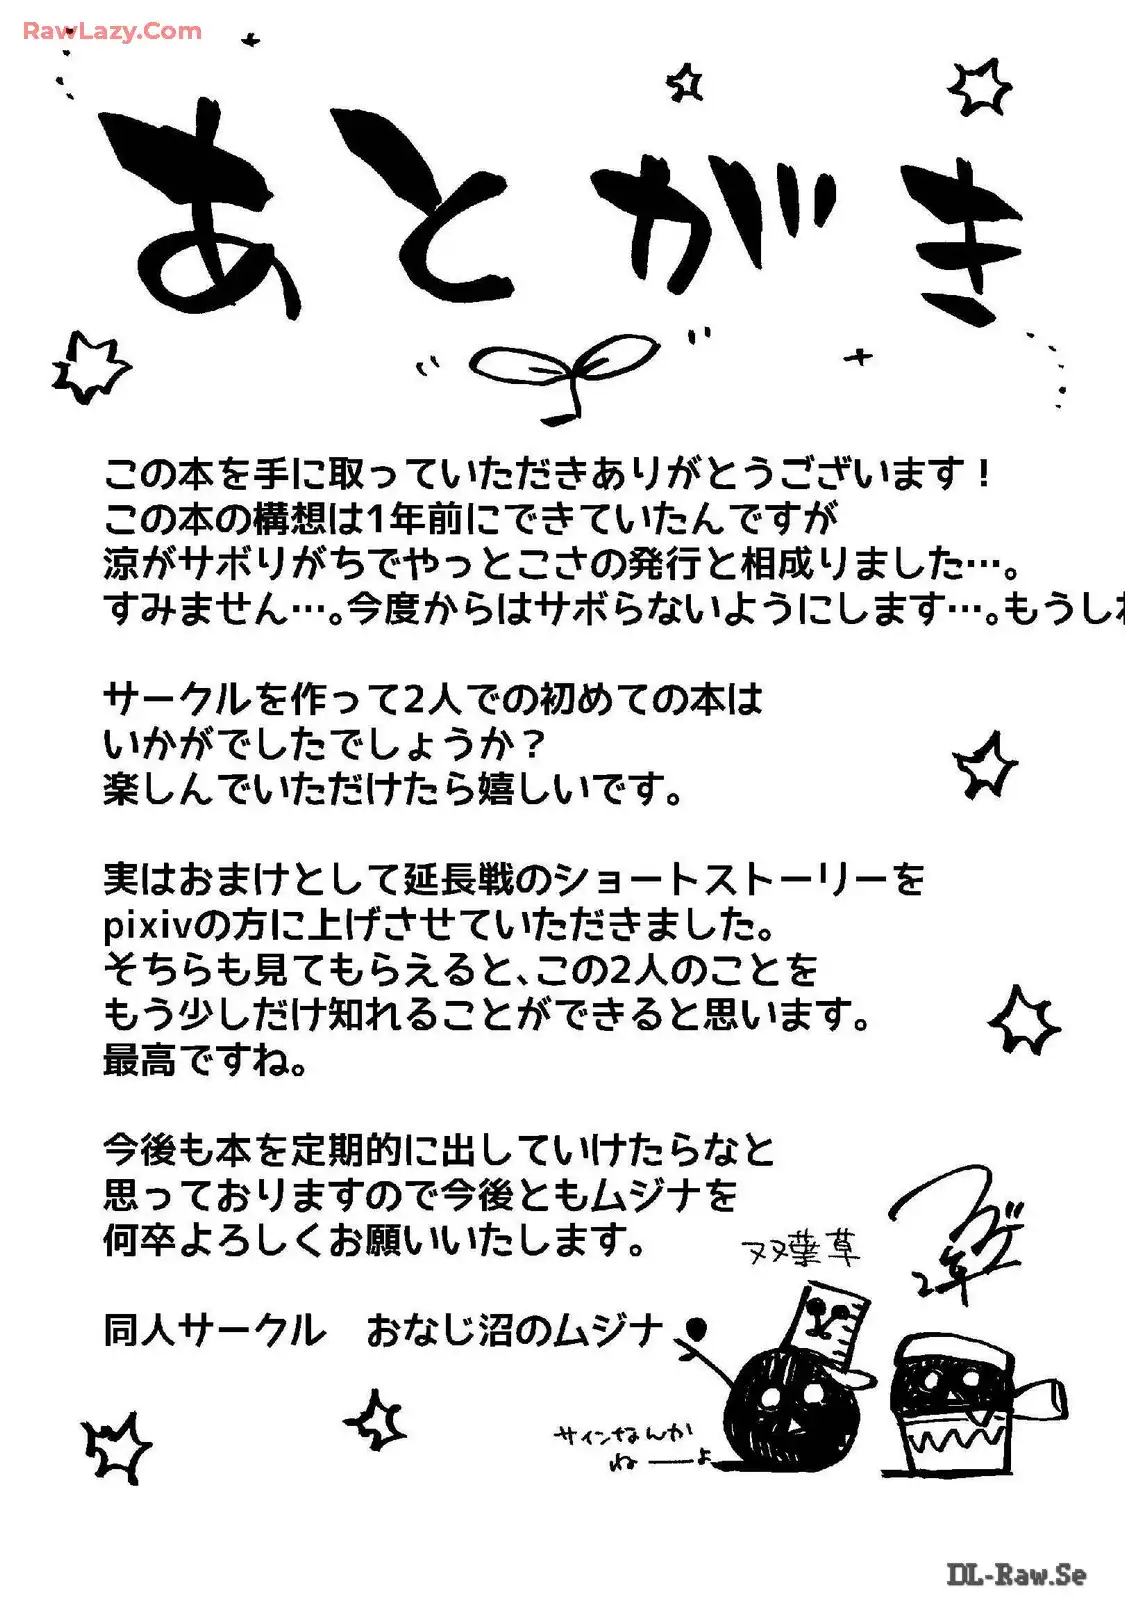 RawLazy.Com
あとがき
この本を手に取っていただきありがとうございます！
この本の構想は1年前にできていたんですが
涼がサボりがちでやっとこさの発行と相成りました…。
すみません…。今度からはサボらないようにします…。もうしわ
サークルを作って2人での初めての本は
いかがでしたでしょうか？
楽しんでいただけたら嬉しいです。
実はおまけとして延長戦のショートストーリーを
pixivの方に上げさせていただきました。
そちらも見てもらえると、この2人のことを
もう少しだけ知れることができると思います。
最高ですね。
今後も本を定期的に出していけたらなと
思っておりますので今後ともムジナを
何卒よろしくお願いいたします。
双葉草
同人サークル　おなじ沼のムジナ
サインなんか
ねーよ
DL-Raw.Se